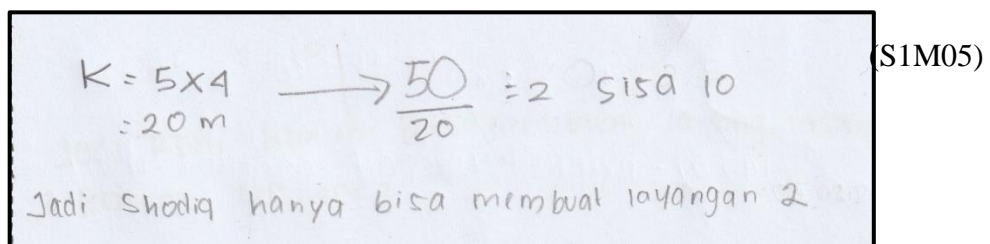 K = 5x4 → 50/20 = 2 sisa 10
= 20 m
Jadi Shodiq hanya bisa membuat layangan 2
(S1M05)